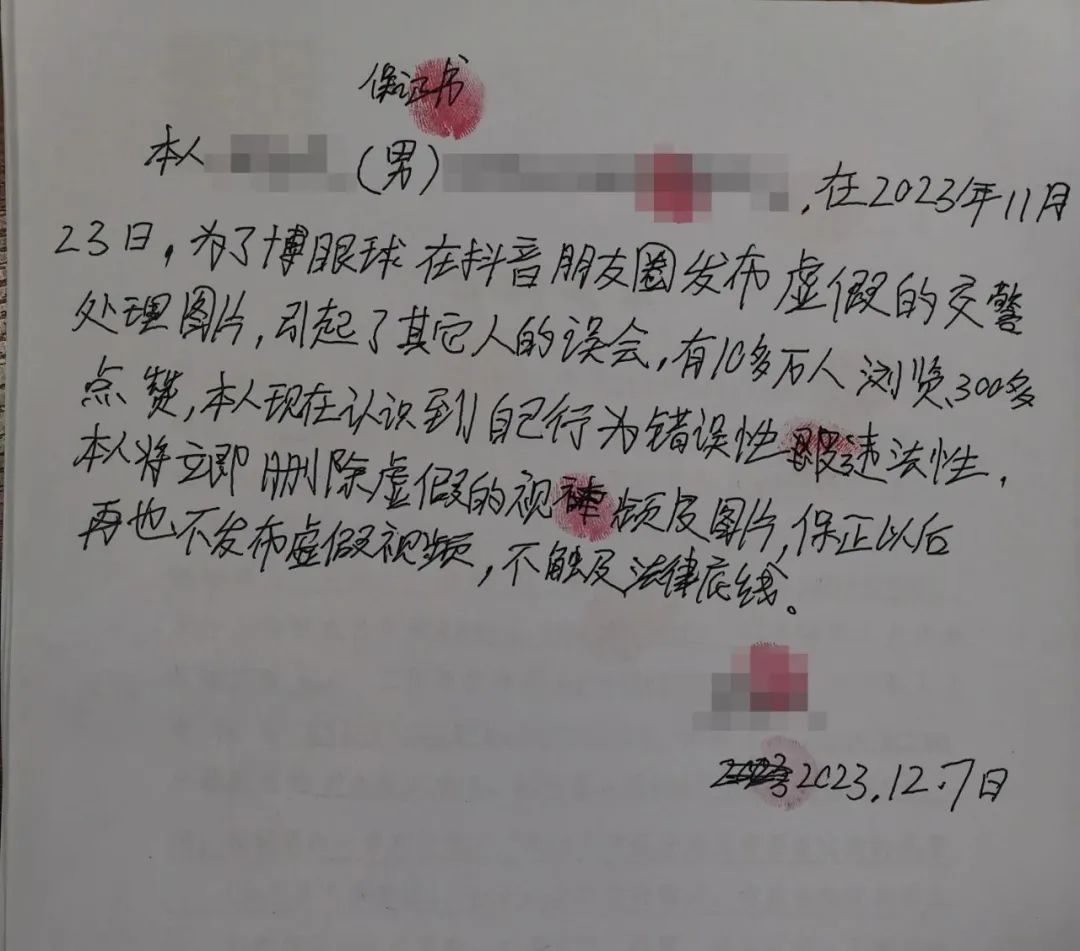 保证书
本人(男),在2023年11月
23日,为了博眼球在抖音朋友圈发布虚假的交警
处理图片,引起了其它人的误会,有10多万人浏览、300多
点赞,本人现在认识到自己行为错误性违法性,
本人将立即删除虚假的视频及图片,保正以后
再也不发布虚假视频,不触及法律底线。
2023.12.7日